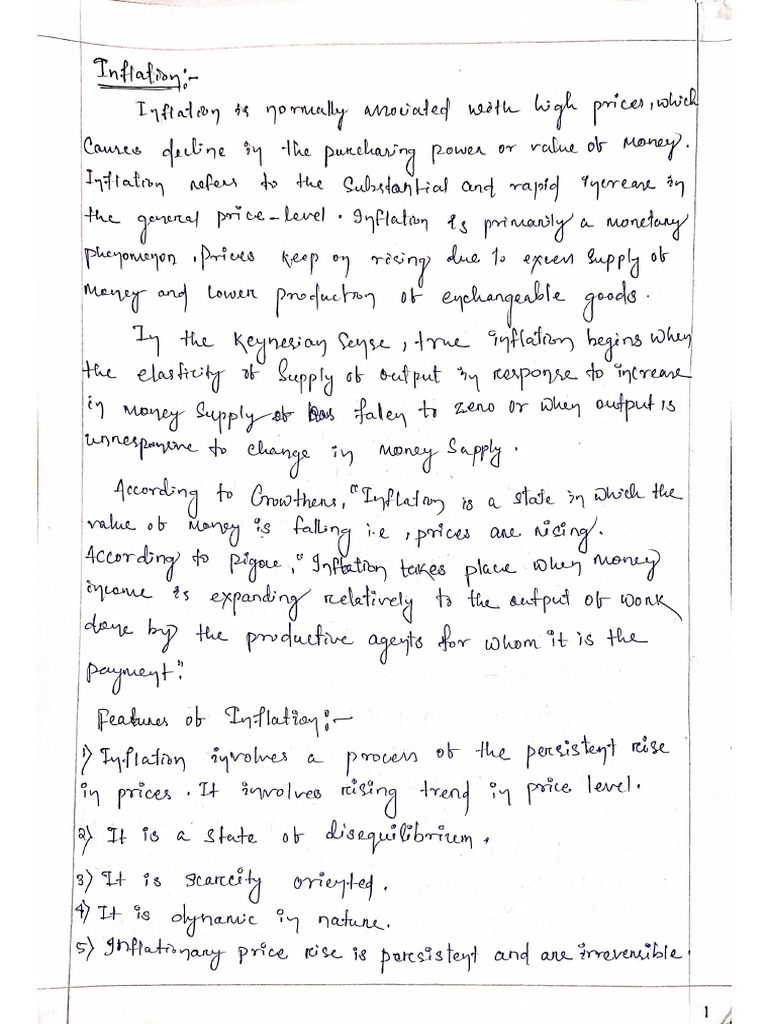 Inflation:-
Inflation is normally associated with high prices, which
Causes decline in the purchasing power or value of money.
Inflation refers to the substantial and rapid increase in
the general price-level. Inflation is primarily a monetary
phenomenon, Prices keep on rising due to excess supply of
money and lower production of exchangeable goods.
In the Keynesian Sense, true inflation begins when
the elasticity of Supply of output in response to increase
in money supply has falen to zero or when output is
unresponsive to change in money supply.
According to Growthens, "Inflation is a state in which the
value of money is falling i.e, prices are rising.
According to pigoue, "Inflation takes place when money
income is expanding relatively to the output of work
done by the productive agents for whom it is the
payment."
Features of Inflation:-
1) Inflation involves a process of the persistent rise
in prices. It involves rising trend in price level.
2) It is a state of disequilibrium.
3) It is scarcity oriented.
4) It is dynamic in nature.
5) Inflationary price rise is persistent and are irreversible.
1